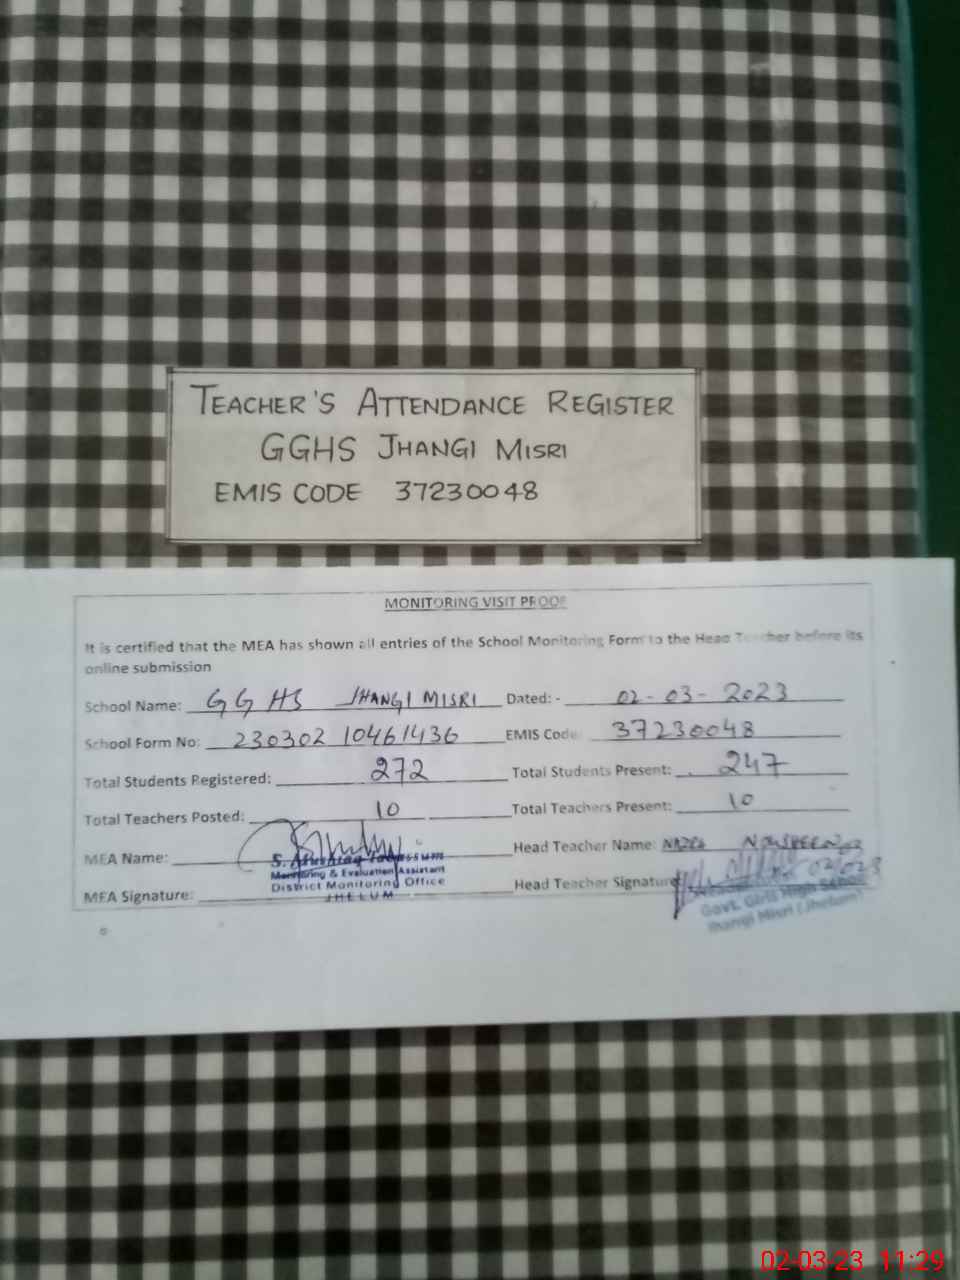 TEACHER'S ATTENDANCE REGISTER
GGHS JHANGI MISRI
EMIS CODE 37230048
MONITORING VISIT PROOF
It is certified that the MEA has shown all entries of the School Monitoring Form to the Head Teacher before its
online submission
School Name: GGHS JHANGI MISRI Dated: - 02-03-2023
School Form No: 230302 10461436 EMIS Code 37230048
Total Students Registered: 272 Total Students Present: 247
Total Teachers Posted: 10 Total Teachers Present: 10
MEA Name: Head Teacher Name:
S. Mushtaq Tabassum
Monitoring & Evaluation Assistant
District Monitoring Office
JHELUM
MEA Signature: Head Teacher Signature
Govt. Girls High School
Jhangi Misri (Jhelum)
02-03-23 11:29